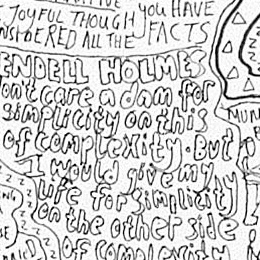 JOYFUL THOUGH YOU HAVE
CONSIDERED ALL THE FACTS
WENDELL HOLMES
don't care a damn for
simplicity on this
of complexity. But
I would give my
life for simplicity
on the other side
of complexity
MUN